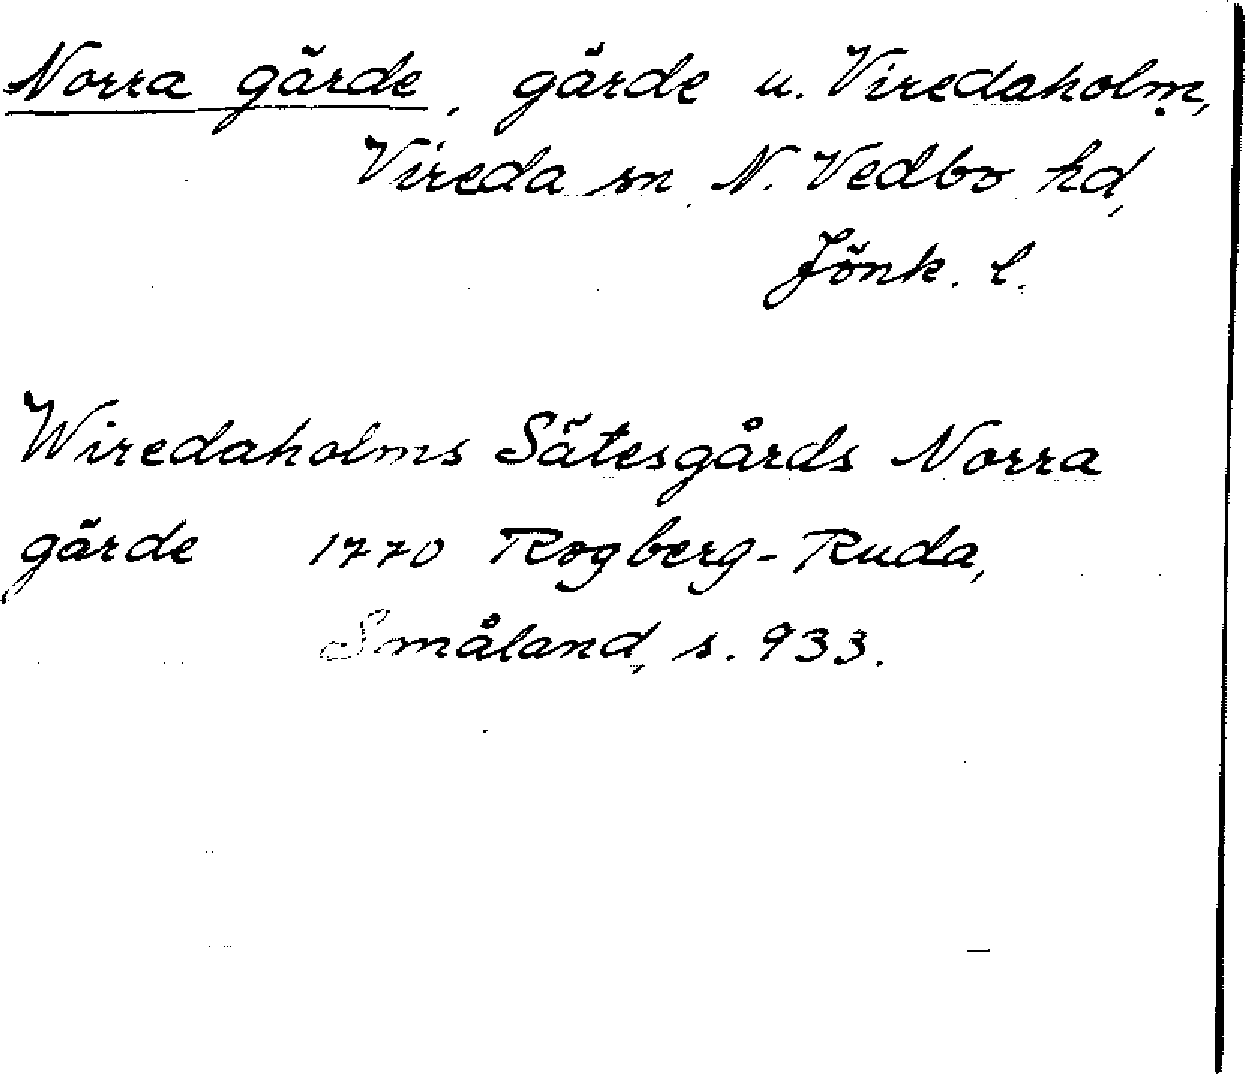 Norra gärde, gärde u. Viredaholm,
Vireda sn, N. Vedbo hd,
Jönk. l.
Wiredaholms Sätesgårds Norra
gärde 1770 Rogberg-Ruda,
Småland, s. 933.